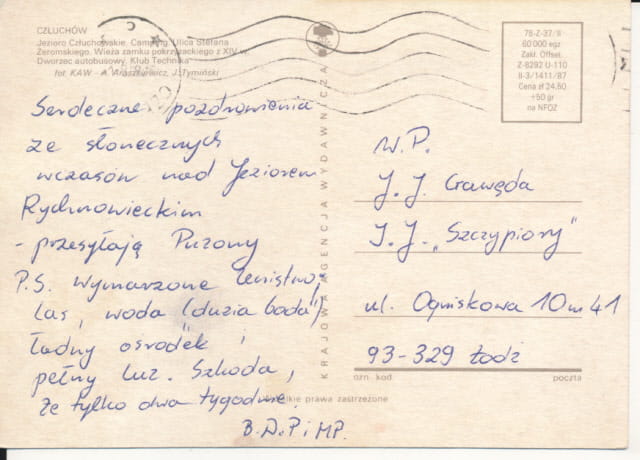 CZŁUCHÓW
Jezioro Człuchowskie. Camping. Ulica Stefana
Żeromskiego. Wieża zamku pokrzyżackiego z XIV w.
Dworzec autobusowy. Klub Technika
fot. KAW - A. Araszkiewicz, J. Tymiński
Serdeczne pozdrowienia
ze słonecznych
wczasów nad Jeziorem
Rychnowieckim
- przesyłają Puzony
P.S. wymarzone
las, woda (duzia bada")
ładny ośrodek i
pełny luz. Szkoda,
że tylko dwa tygodnie.
B.D.P i MP.
KRAJOWA AGENCJA WYDAWNICZA
78-Z-37/II
60 000 egz
Zakł. Offset.
Z-8292 U-110
II-3/1411/87
Cena zł 24,50
+50 gr
na NFOZ
W.P.
J. J. Crawęda
J. J. „Szczypiory"
ul. Ogniskowa 10 m 41
93-329 Łódź
ozn. kod
poczta
Wszelkie prawa zastrzeżone